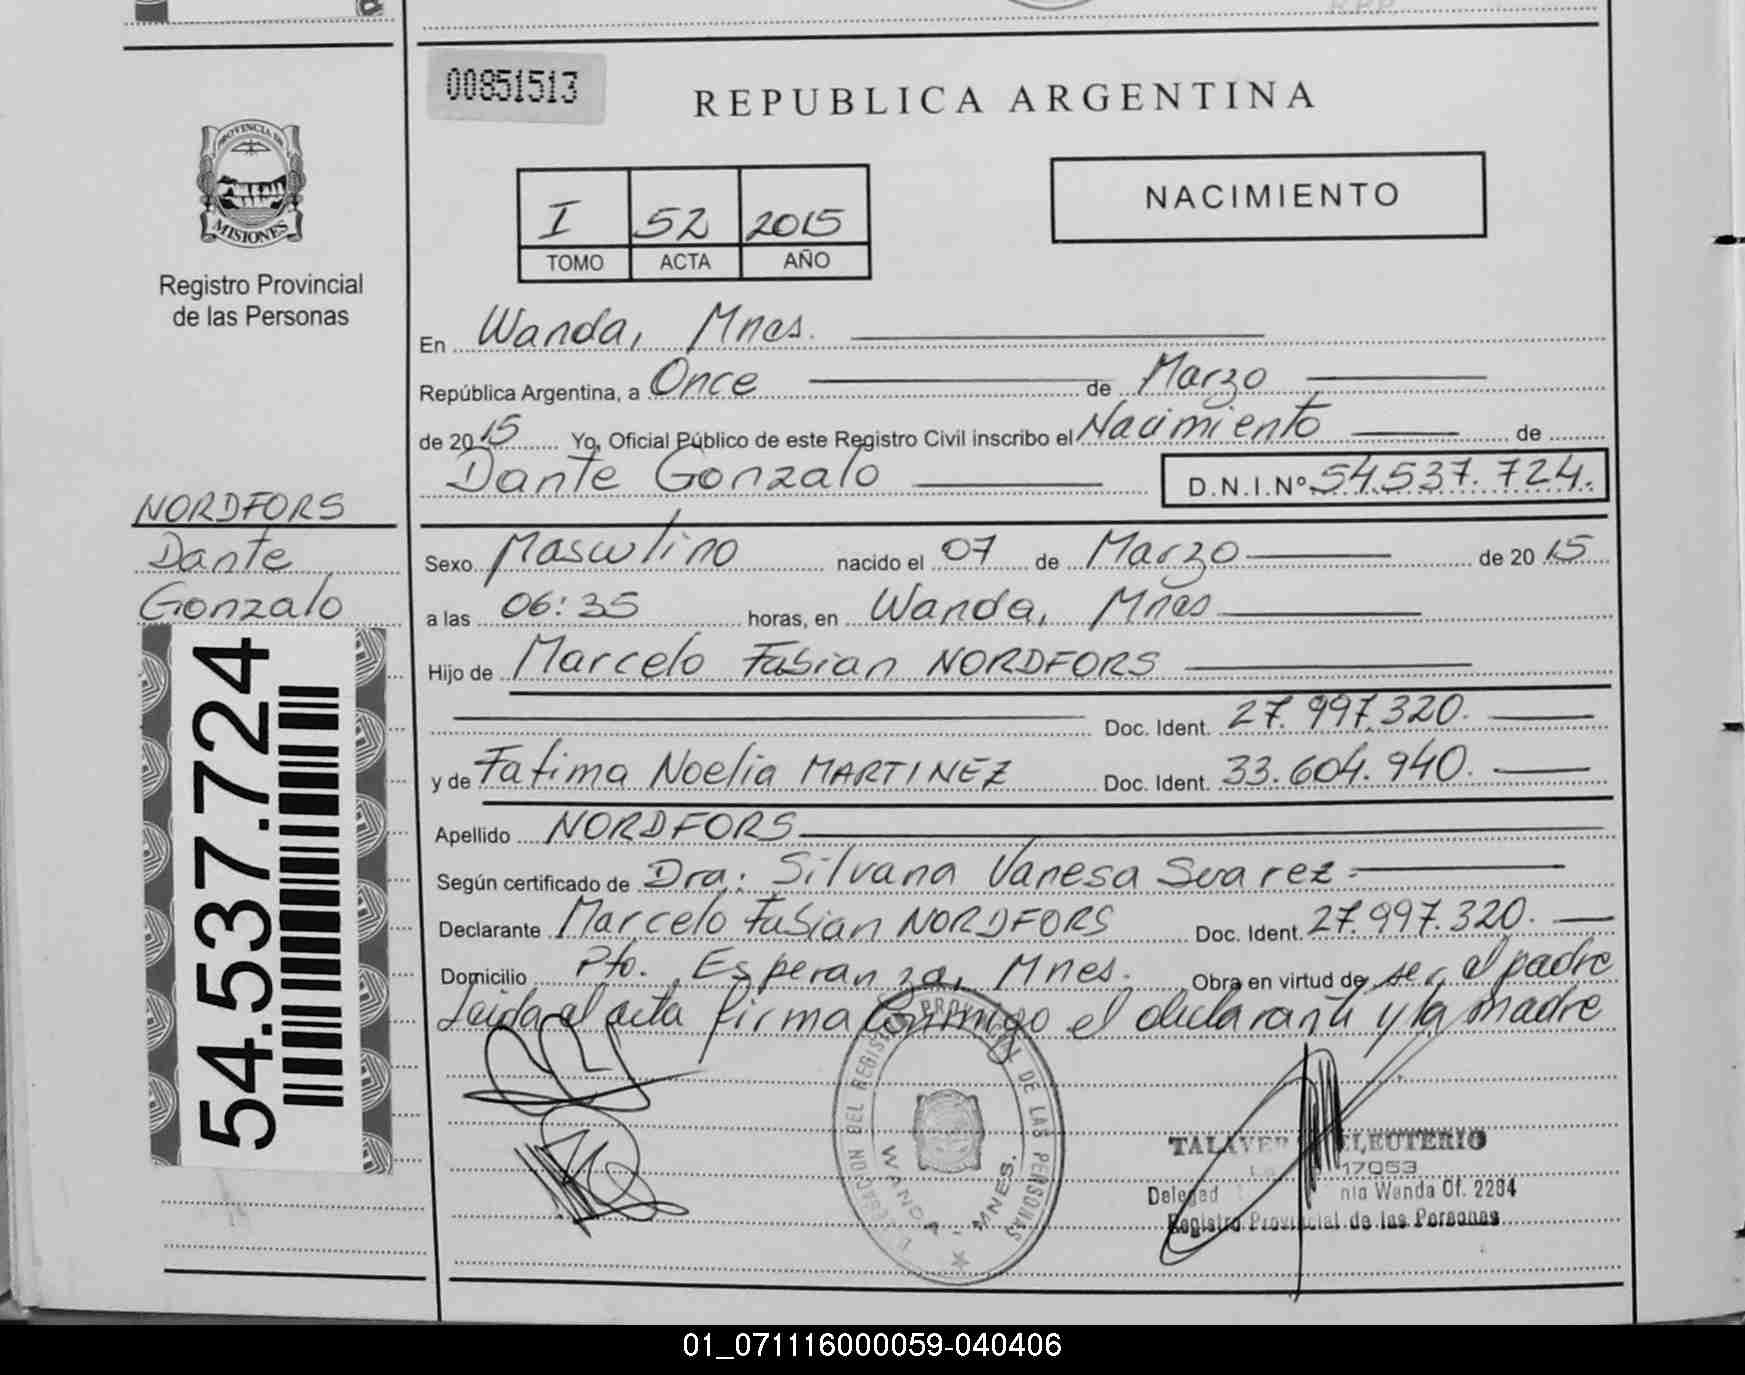 00851513
REPUBLICA ARGENTINA
PROVINCIA DE
MISIONES
Registro Provincial
de las Personas
I 52 2015
TOMO ACTA AÑO
NACIMIENTO
En Wanda, Mnes.
República Argentina, a Once de Marzo
de 2015 Yo, Oficial Público de este Registro Civil inscribo el Nacimiento de
Dante Gonzalo D.N.I.Nº 54.537.724.
NORDFORS
Dante
Gonzalo
54.537.724
Sexo Masculino nacido el 07 de Marzo de 2015
a las 06:35 horas, en Wanda, Mnes
Hijo de Marcelo Fabian NORDFORS
Doc. Ident. 27.997.320.
y de Fatima Noelia MARTINEZ Doc. Ident. 33.604.940.
Apellido NORDFORS
Según certificado de Dra. Silvana Vanesa Suarez.
Declarante Marcelo Fabian NORDFORS Doc. Ident. 27.997.320.
Domicilio Pto. Esperanza, Mnes. Obra en virtud de ser el padre
Leida el acta firma conmigo el declarante y la madre
DEL REGISTRO PROVINCIAL DE LAS PERSONAS
WANDA - MNES.
ELEUTERIO
17053
Wanda Of. 2284
Registro Provincial de las Personas
01_071116000059-040406